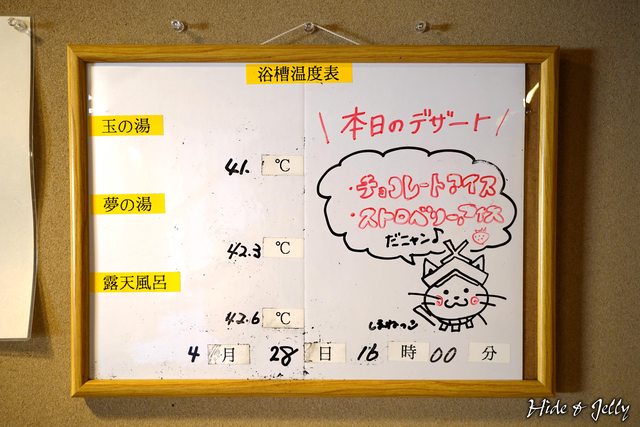 浴槽温度表
玉の湯
41. ℃
夢の湯
42.3 ℃
露天風呂
42.6 ℃
4 月 28 日 16 時 00 分
\ 本日のデザート /
・チョコレートアイス
・ストロベリーアイス
だニャン♪
しまねっこ
Hide & Jelly